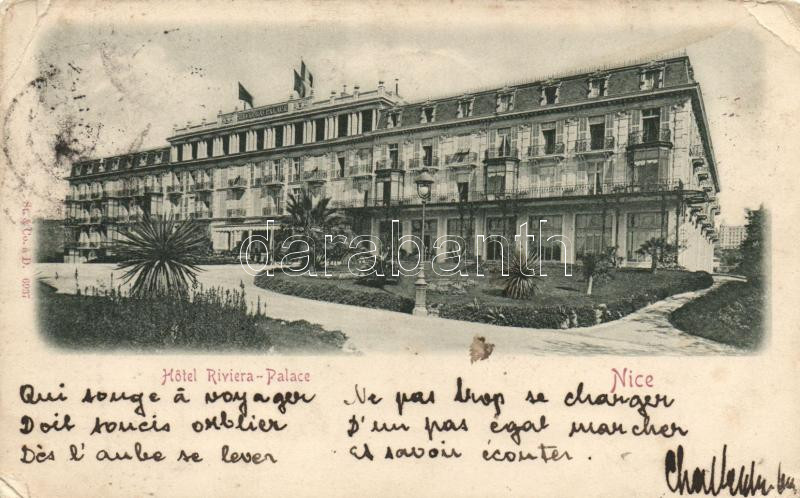 RIVIERA PALACE
darabanth
St. & Co. a D. 6927
Hôtel Riviera-Palace
Nice
Qui songe à voyager
Doit soucis oublier
Dès l'aube se lever
Ne pas trop se charger
D'un pas égal marcher
Et savoir écouter.